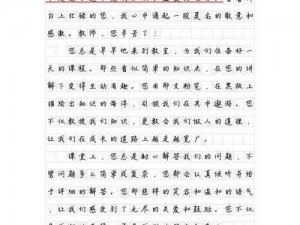 台上忙碌的您，我心中涌起一股莫名的敬意和
感激。教师，您辛苦了！
您总是早早地来到教室，为我们准备好一
天的课程。那些看似简单的知识点，在您的讲
解下变得生动有趣。您用那支粉笔，在黑板上
描绘出知识的海洋，引领我们在其中遨游。您
不仅教授我们知识，更教会我们做人的道理，
让我们在成长的道路上越走越宽广。
课堂上，您总是耐心解答我们的问题，不
管问题多么简单或复杂，您都会认真倾听并给
予详细的解答。您那慈祥的笑容和温和的语气
，让我们感受到了无尽的关爱和鼓励。您不仅